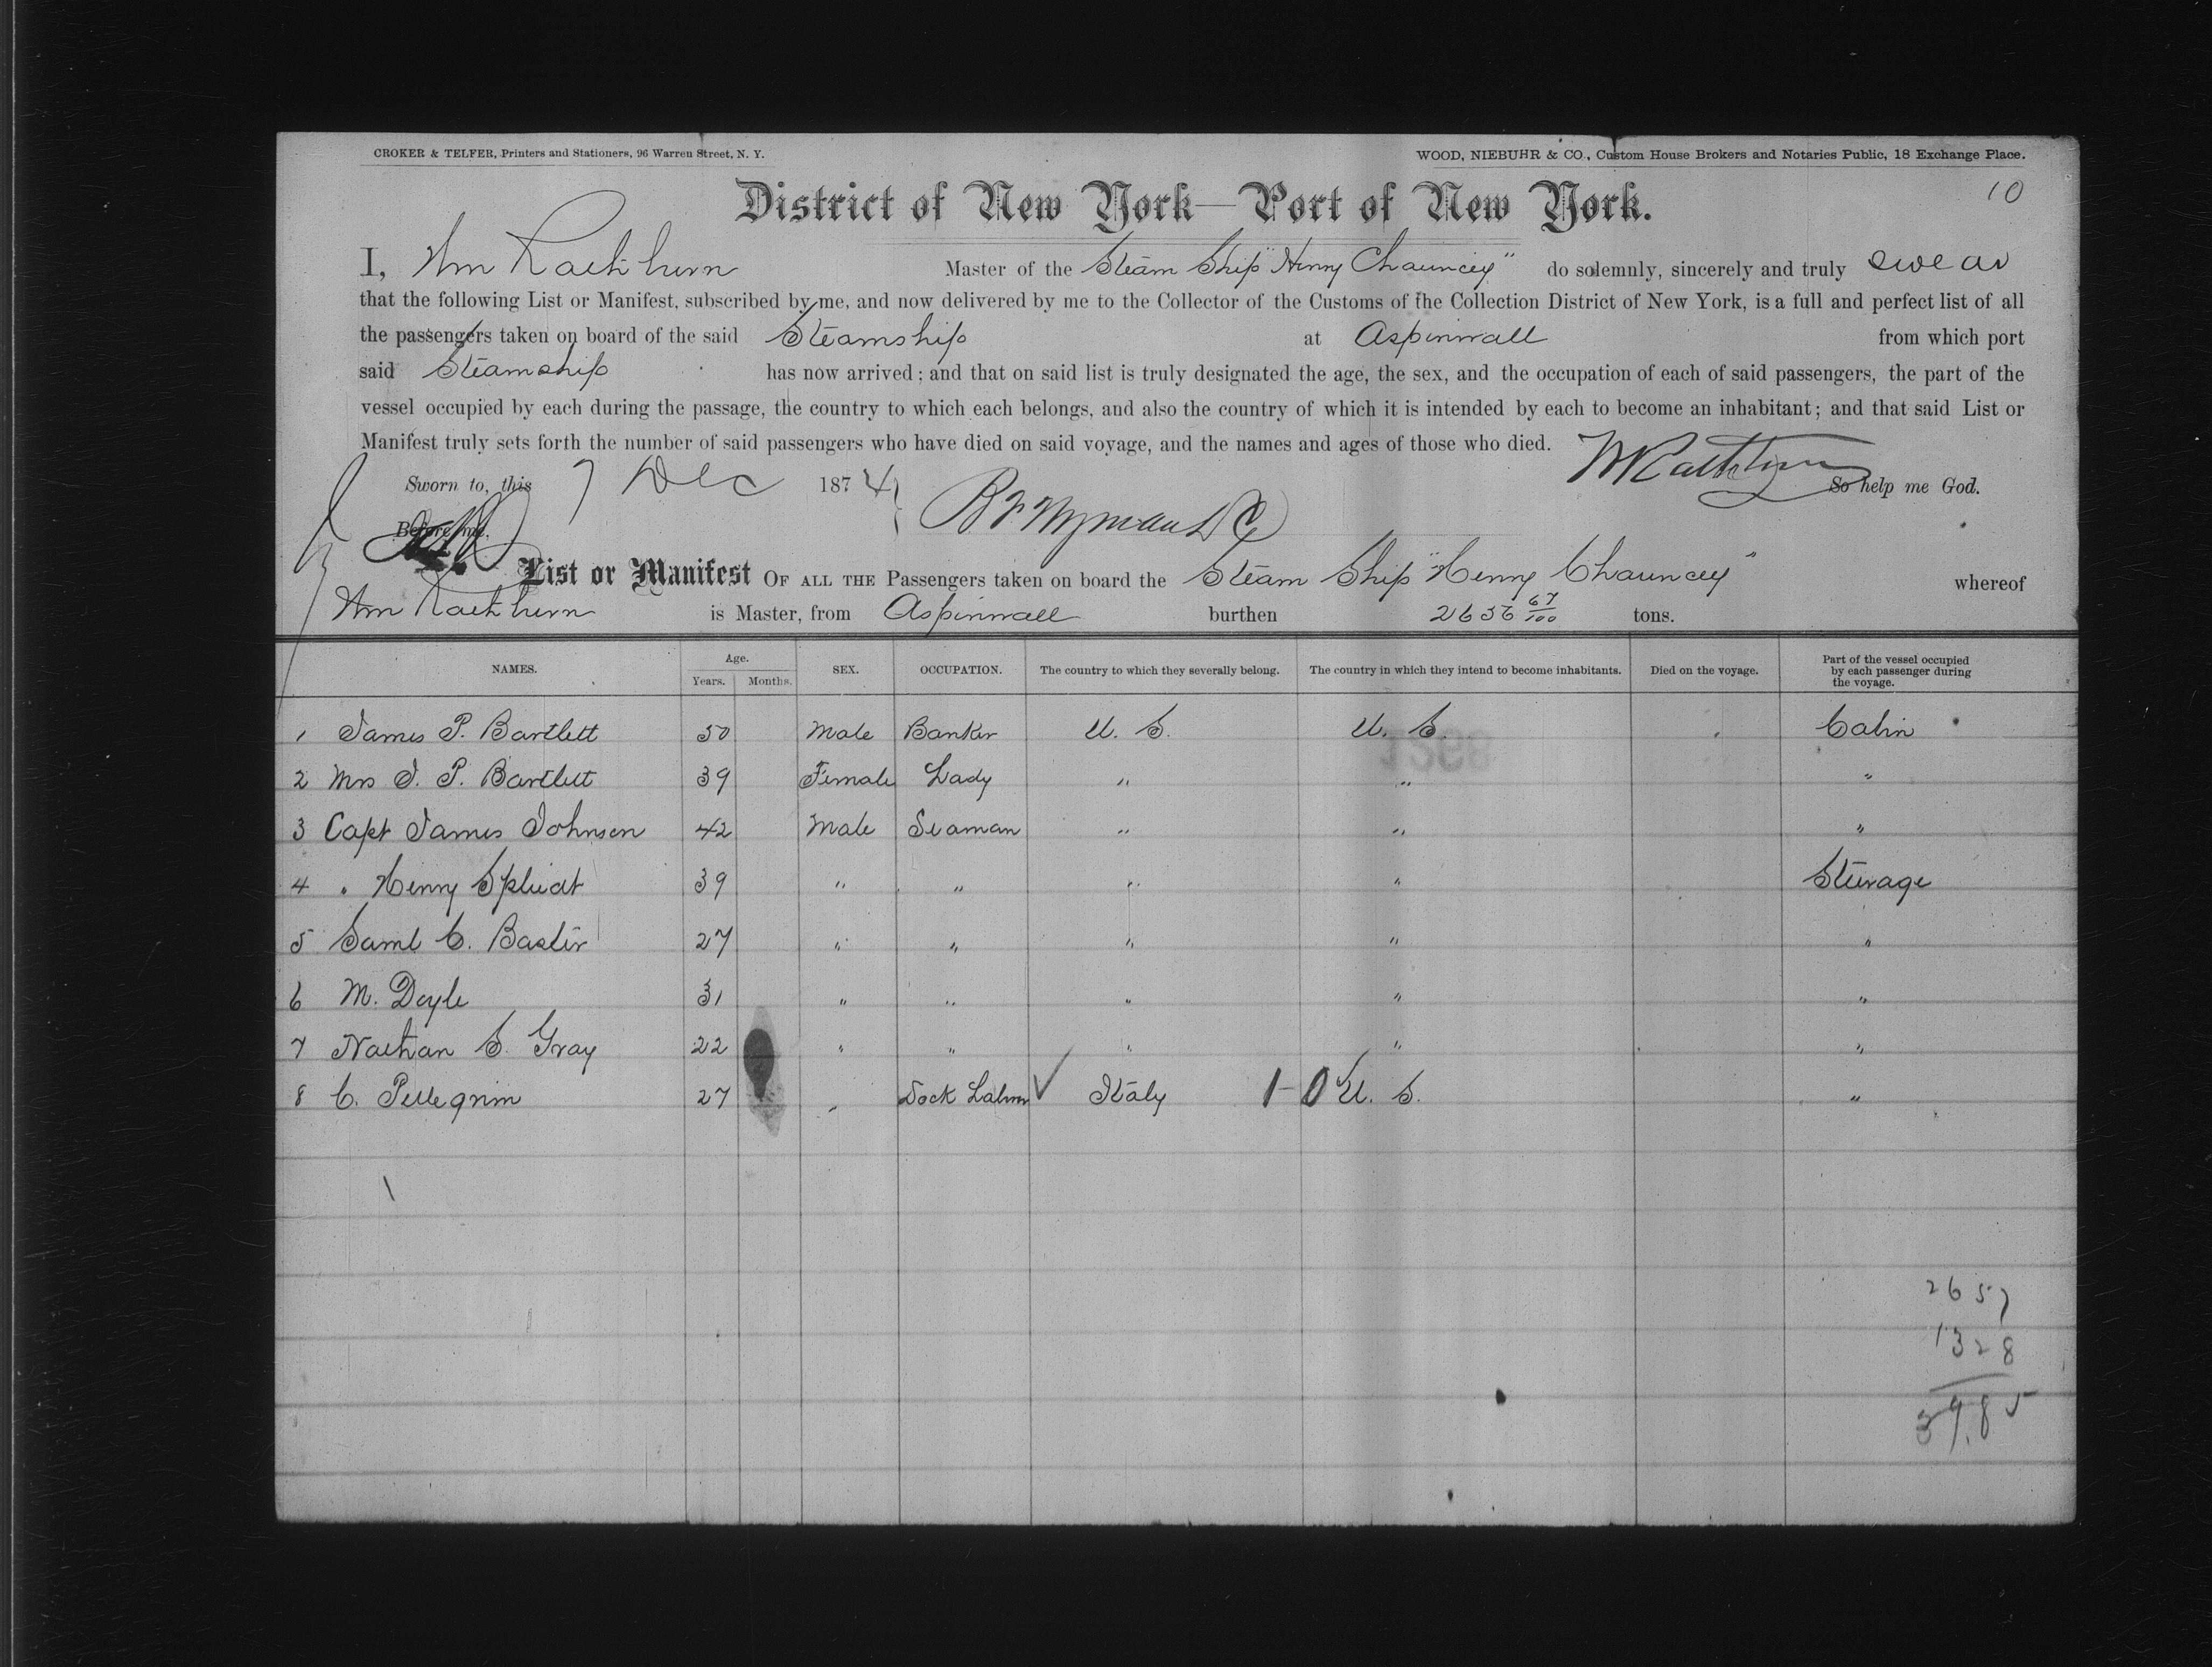 CROKER & TELFER, Printers and Stationers, 96 Warren Street, N. Y. WOOD, NIEBUHR & CO., Custom House Brokers and Notaries Public, 18 Exchange Place.
10
District of New York—Port of New York.
I, Wm Rathburn Master of the Steam Ship "Henry Chauncey" do solemnly, sincerely and truly swear
that the following List or Manifest, subscribed by me, and now delivered by me to the Collector of the Customs of the Collection District of New York, is a full and perfect list of all
the passengers taken on board of the said Steamship at Aspinwall from which port
said Steamship has now arrived; and that on said list is truly designated the age, the sex, and the occupation of each of said passengers, the part of the
vessel occupied by each during the passage, the country to which each belongs, and also the country of which it is intended by each to become an inhabitant; and that said List or
Manifest truly sets forth the number of said passengers who have died on said voyage, and the names and ages of those who died. W Rathburn
Sworn to, this 7 Dec 1874 So help me God.
Before me, B F Wyman D C
List or Manifest OF ALL THE Passengers taken on board the Steam Ship "Henry Chauncey" whereof
Wm Rathburn is Master, from Aspinwall burthen 2656 67/100 tons.
NAMES. Age. Years. Months. SEX. OCCUPATION. The country to which they severally belong. The country in which they intend to become inhabitants. Died on the voyage. Part of the vessel occupied by each passenger during the voyage.
1 James P. Bartlett 50 Male Banker U. S. U. S. Cabin
2 Mrs J. P. Bartlett 39 Female Lady " " "
3 Capt James Johnson 42 Male Seaman " " "
4 " Henry 39 " " " " Steerage
5 Saml C. 27 " " " " "
6 M. Doyle 31 " " " " "
7 Nathan S. Gray 22 " " " " "
8 C. Pellegrim 27 " Dock Labrer ✓ Italy 1-0 U. S. "
2657
1328
3985